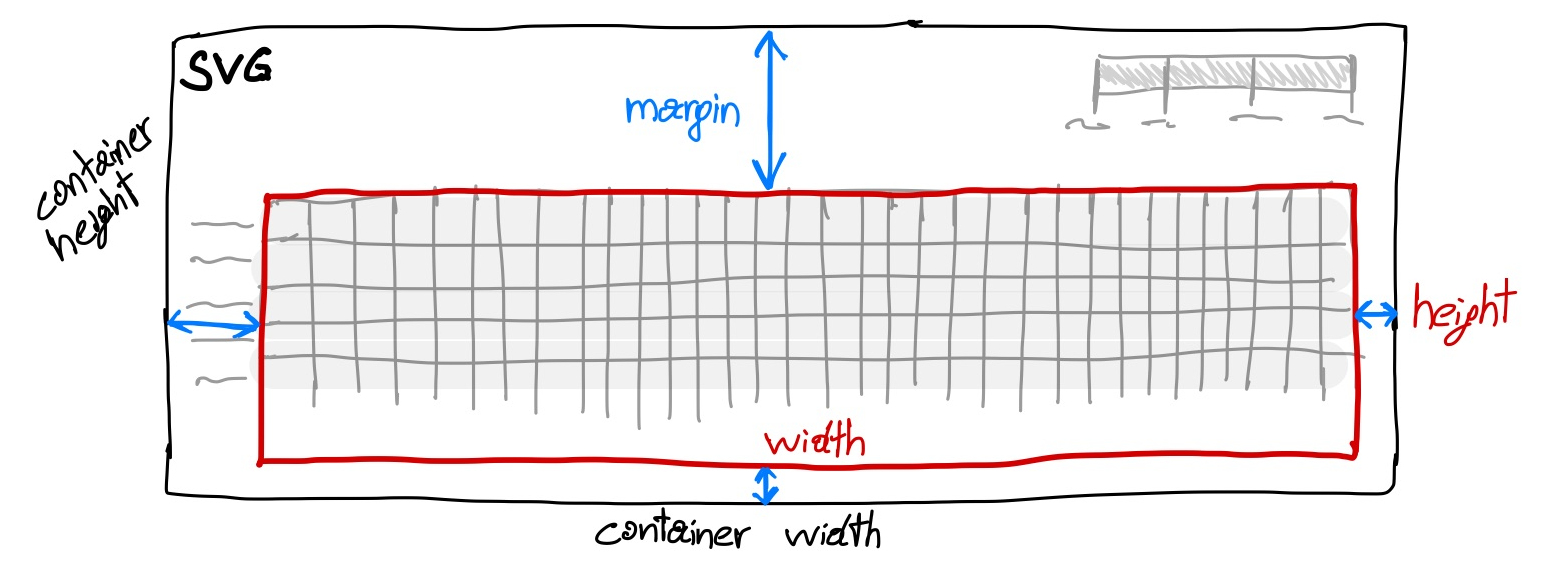 SVG
margin
container
height
height
width
container width